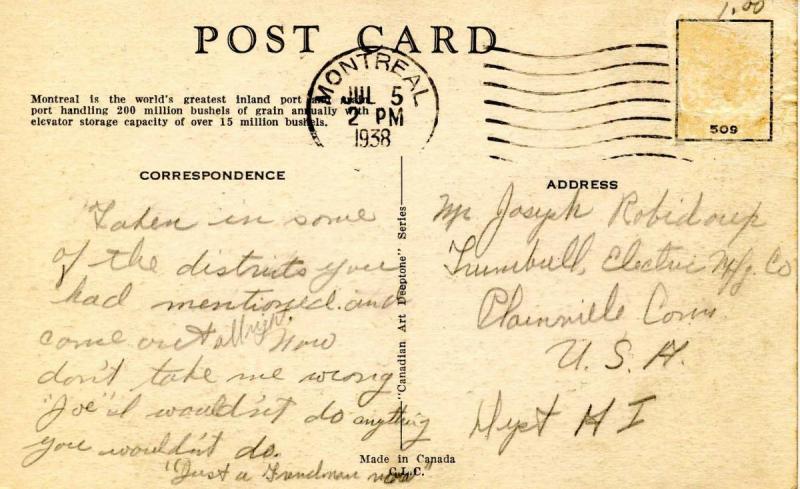 1.00
POST CARD
MONTREAL
JUL 5
2 PM
1938
509
Montreal is the world's greatest inland port and
port handling 200 million bushels of grain annually with
elevator storage capacity of over 15 million bushels.
CORRESPONDENCE
"Taken in some
of the districts you
had mentioned and
come out allright. Now
don't take me wrong
"Joe" I wouldn't do anything
you wouldn't do.
"Just a Frenchman now"
"Canadian Art Deeptone" Series
Made in Canada
C.L.C.
ADDRESS
Mr Joseph Robidoux
Trumbull, Electric Mfg. Co
Plainville Conn.
U. S. A.
Dept H I